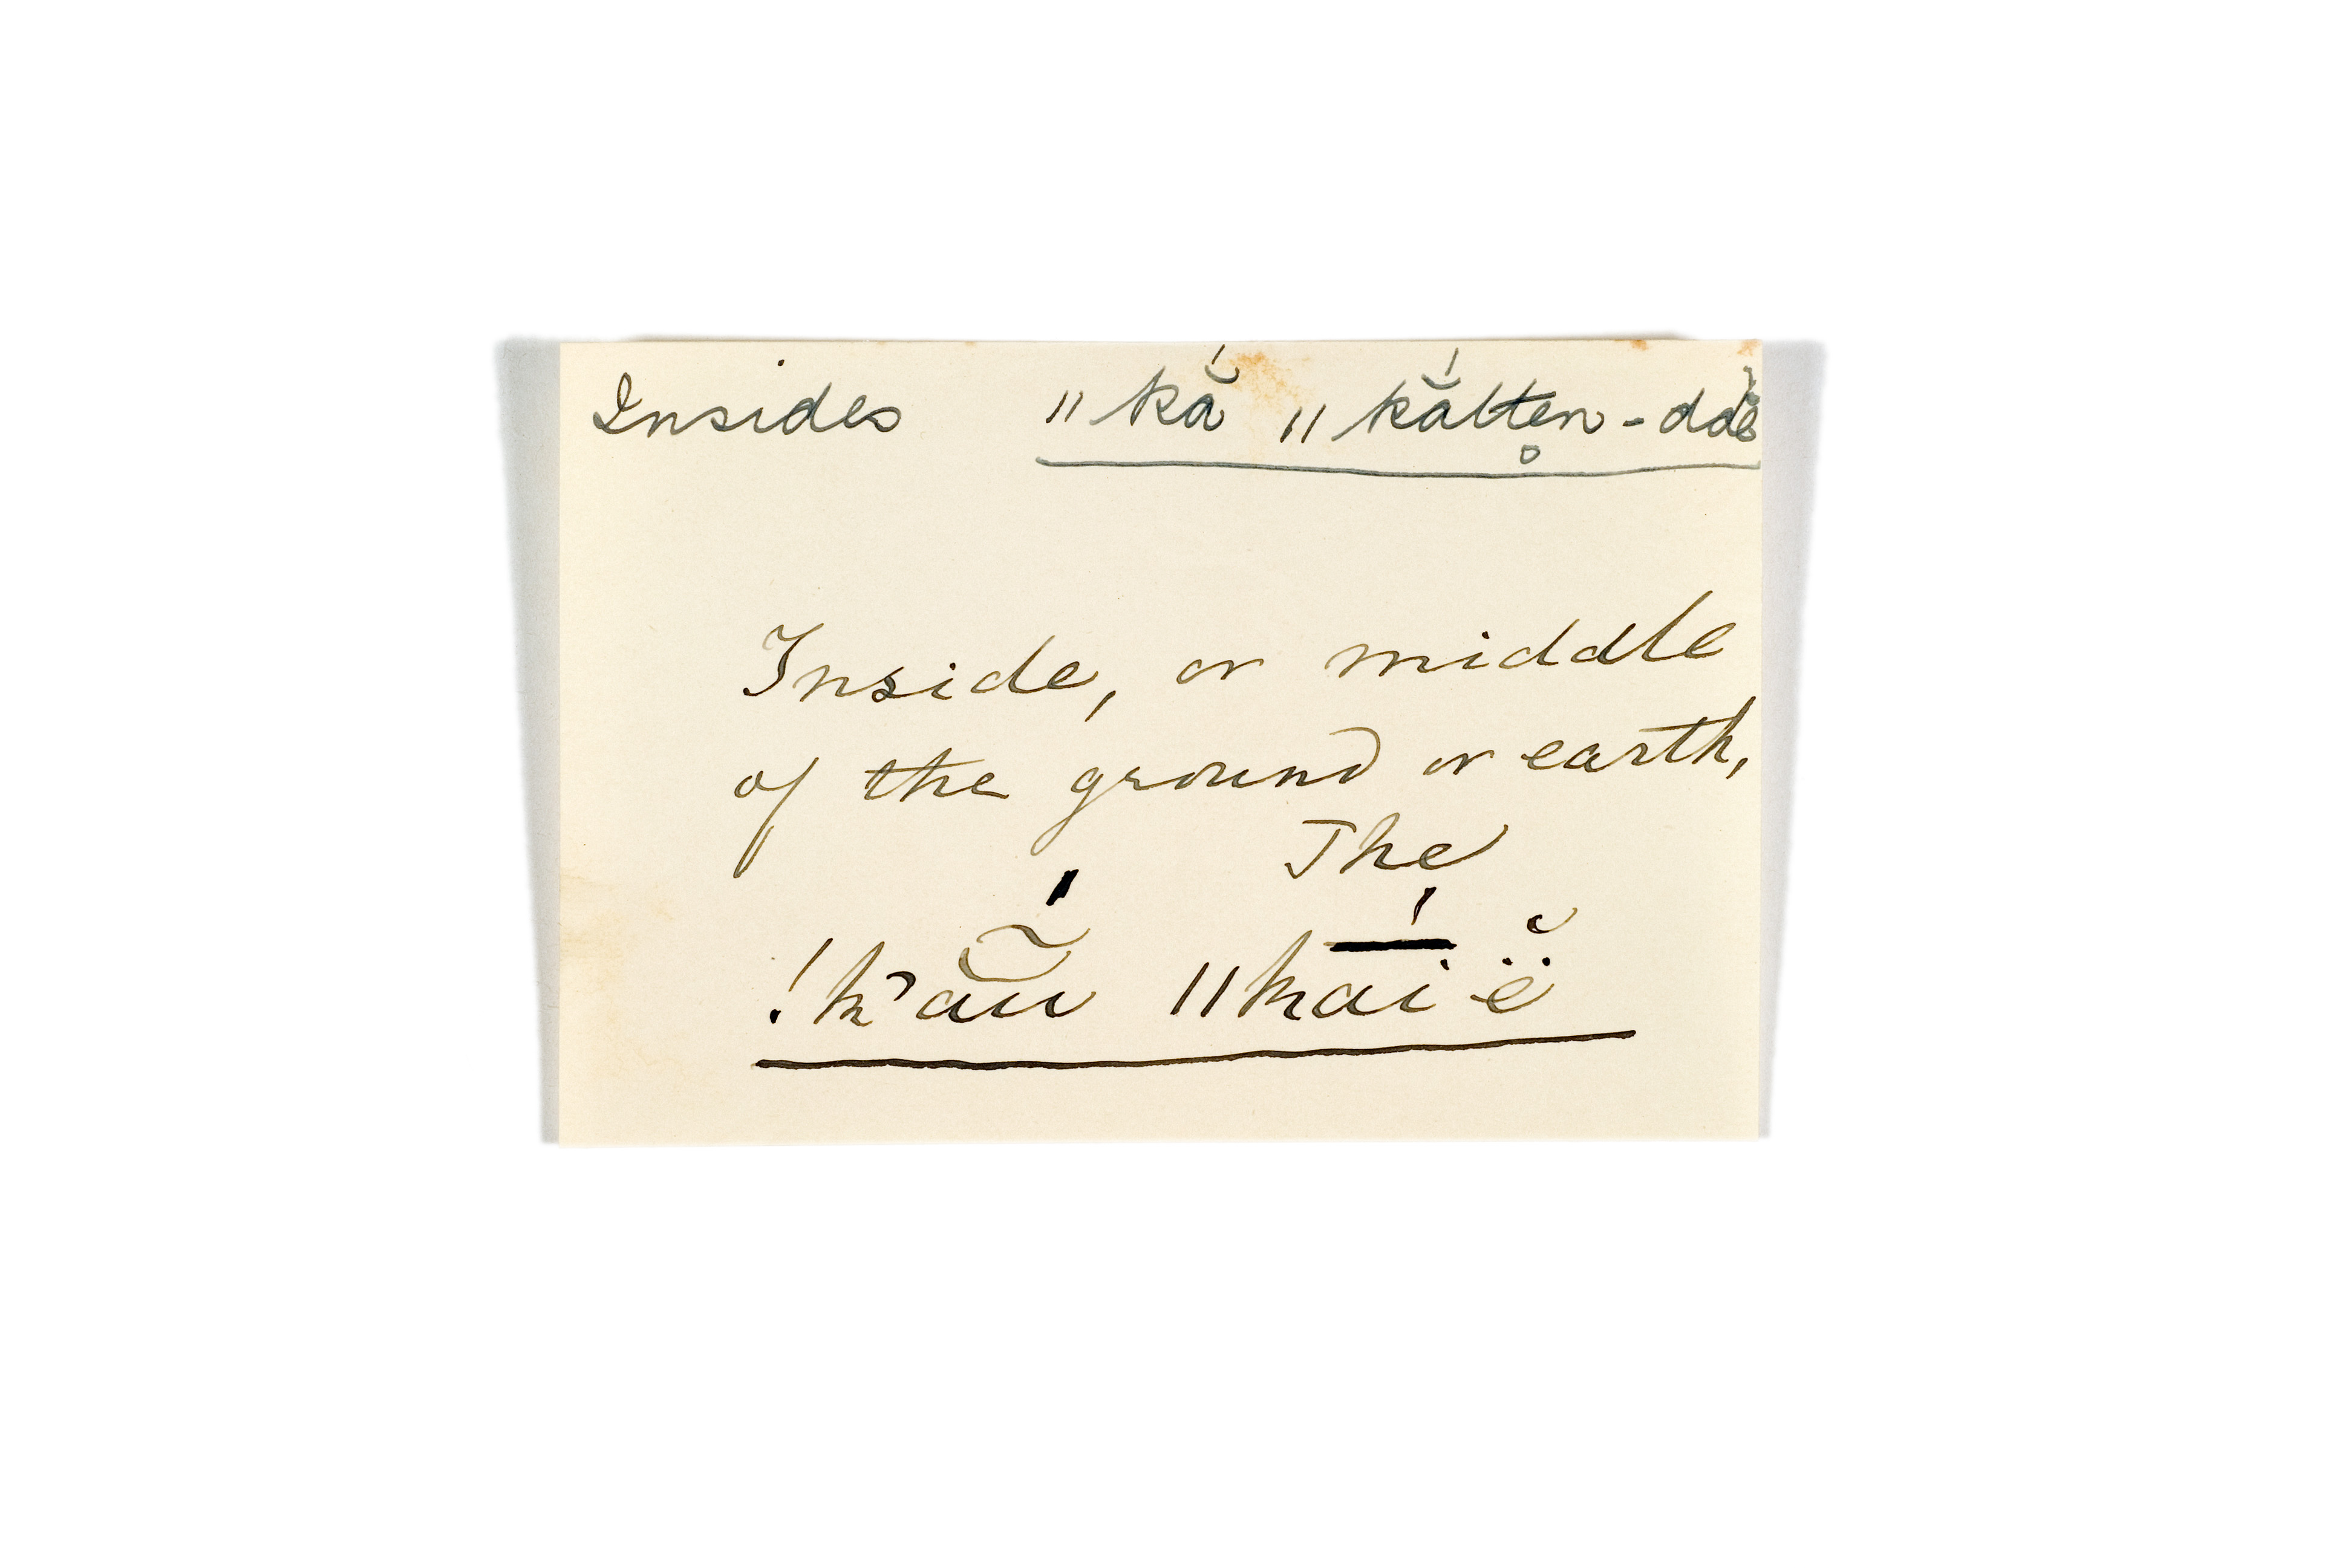 Insides ǁkắ ǁkắltẹn-ddĕ̈
Inside, or middle
of the ground or earth,
The
!k'ãŭ́ ǁkā́ië̆